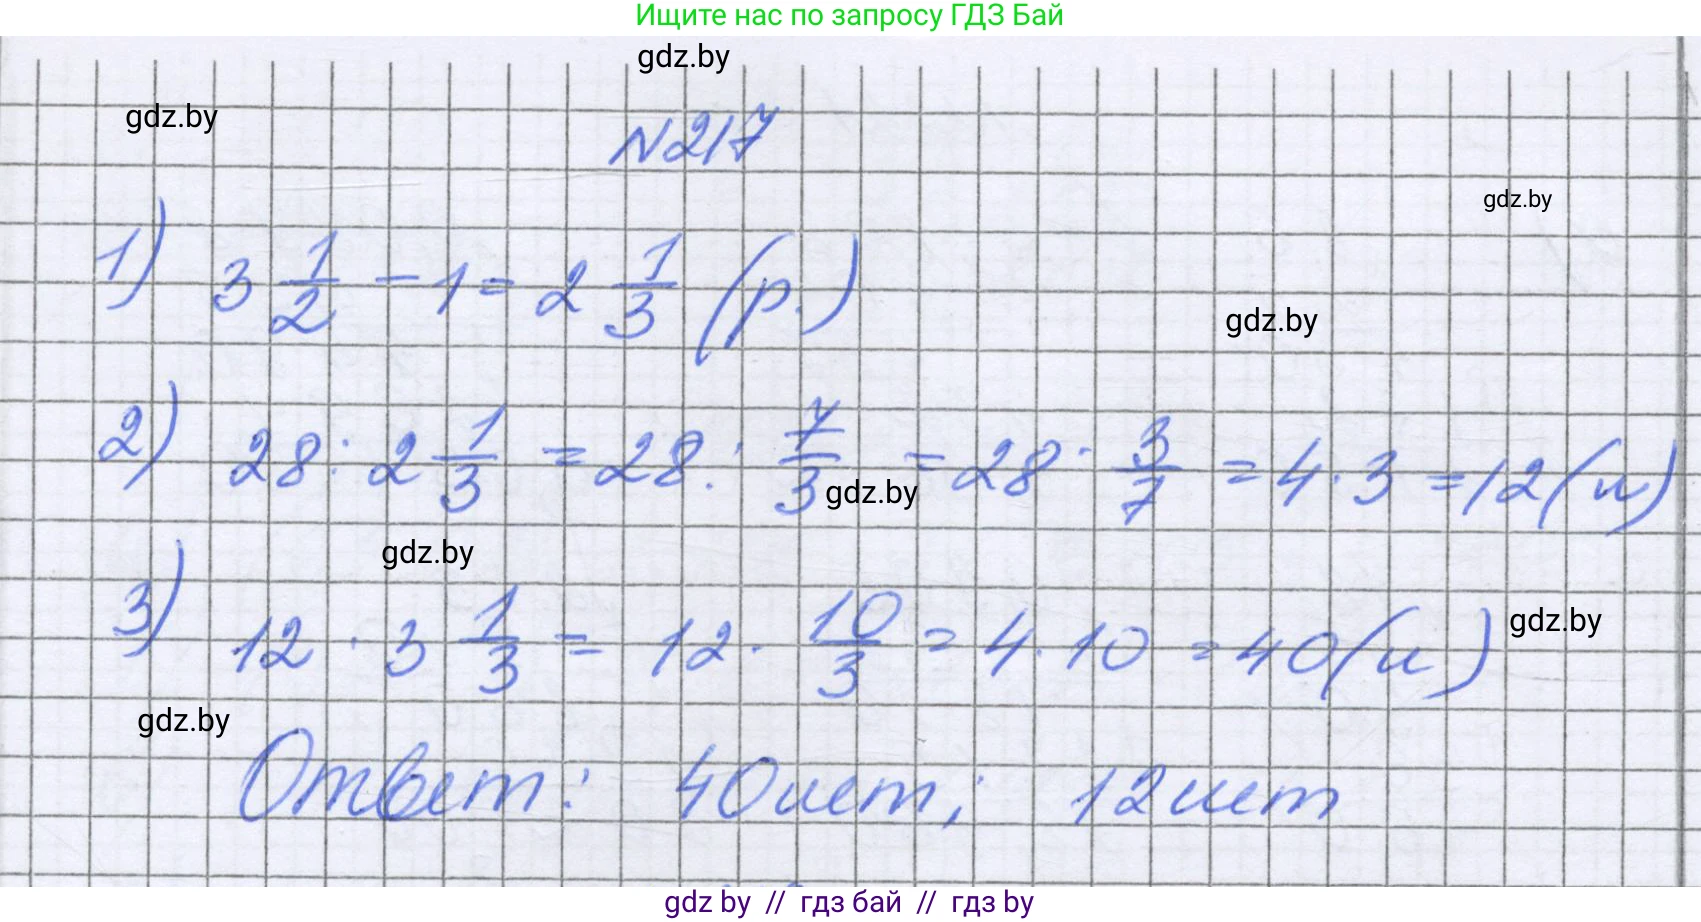 Ищите нас по запросу ГДЗ Бай
gdz.by
gdz.by
N217
gdz.by
1) 3 1/2 - 1 = 2 1/3 (р.)
gdz.by
2) 28 : 2 1/3 = 28 : 7/3 = 28 · 3/7 = 4 · 3 = 12 (л)
gdz.by
gdz.by
3) 12 · 3 1/3 = 12 · 10/3 = 4 · 10 = 40 (л)
gdz.by
gdz.by
Ответ: 40 лет; 12 лет
gdz by // гдз бай // гдз by